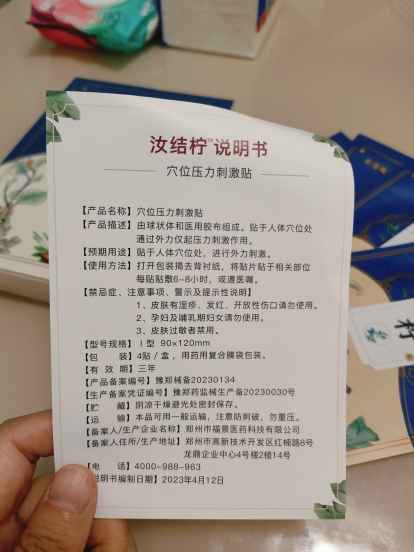 汝结柠™说明书
穴位压力刺激贴
【产品名称】穴位压力刺激贴
【产品描述】由球状体和医用胶布组成。贴于人体穴位处
通过外力仅起压力刺激作用。
【预期用途】贴于人体穴位处，进行外力刺激。
【使用方法】打开包装揭去背衬纸，将贴片贴于相关部位
每贴贴敷6-8小时，或遵医嘱。
【禁忌症、注意事项、警示及提示性说明】
1、皮肤有湿疹、发红、开放性伤口请勿使用。
2、孕妇及哺乳期妇女请勿使用。
3、皮肤过敏者禁用。
【型号规格】Ⅰ型 90x120mm
【包 装】4贴/盒，用药用复合膜袋包装。
【有 效 期】三年
【产品备案编号】豫郑械备20230134
【生产备案凭证编号】豫郑药监械生产备20230030号
【贮 藏】阴凉干燥避光处密封保存。
【运 输】本品可用一般运输，注意防刺破，勿重压。
【备案人/生产企业名称】郑州市福景医药科技有限公司
【备案人住所/生产地址】郑州市高新技术开发区红楠路8号
龙鼎企业中心4号楼2楼14号
【电 话】4000-988-963
说明书编制日期】2023年4月12日
柠